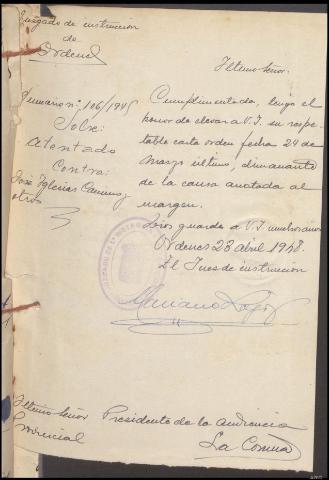 Juzgado de instrucción
de
Ordenes
Sumario nº 106/194
Sobre:
Atentado
Contra:
José Iglesias Camino y
otro
Iltmo Señor:
Cumplimentada, tengo el
honor de elevar a V.I. su respe-
table carta orden fecha 24 de
Marzo último, dimanante
de la causa anotada al
margen.
Dios guarde a V.I. muchos años
Ordenes 23 abril 1948.
El Juez de instrucción
Mariano
Iltmo Señor Presidente de la Audiencia
Provincial
La Coruña